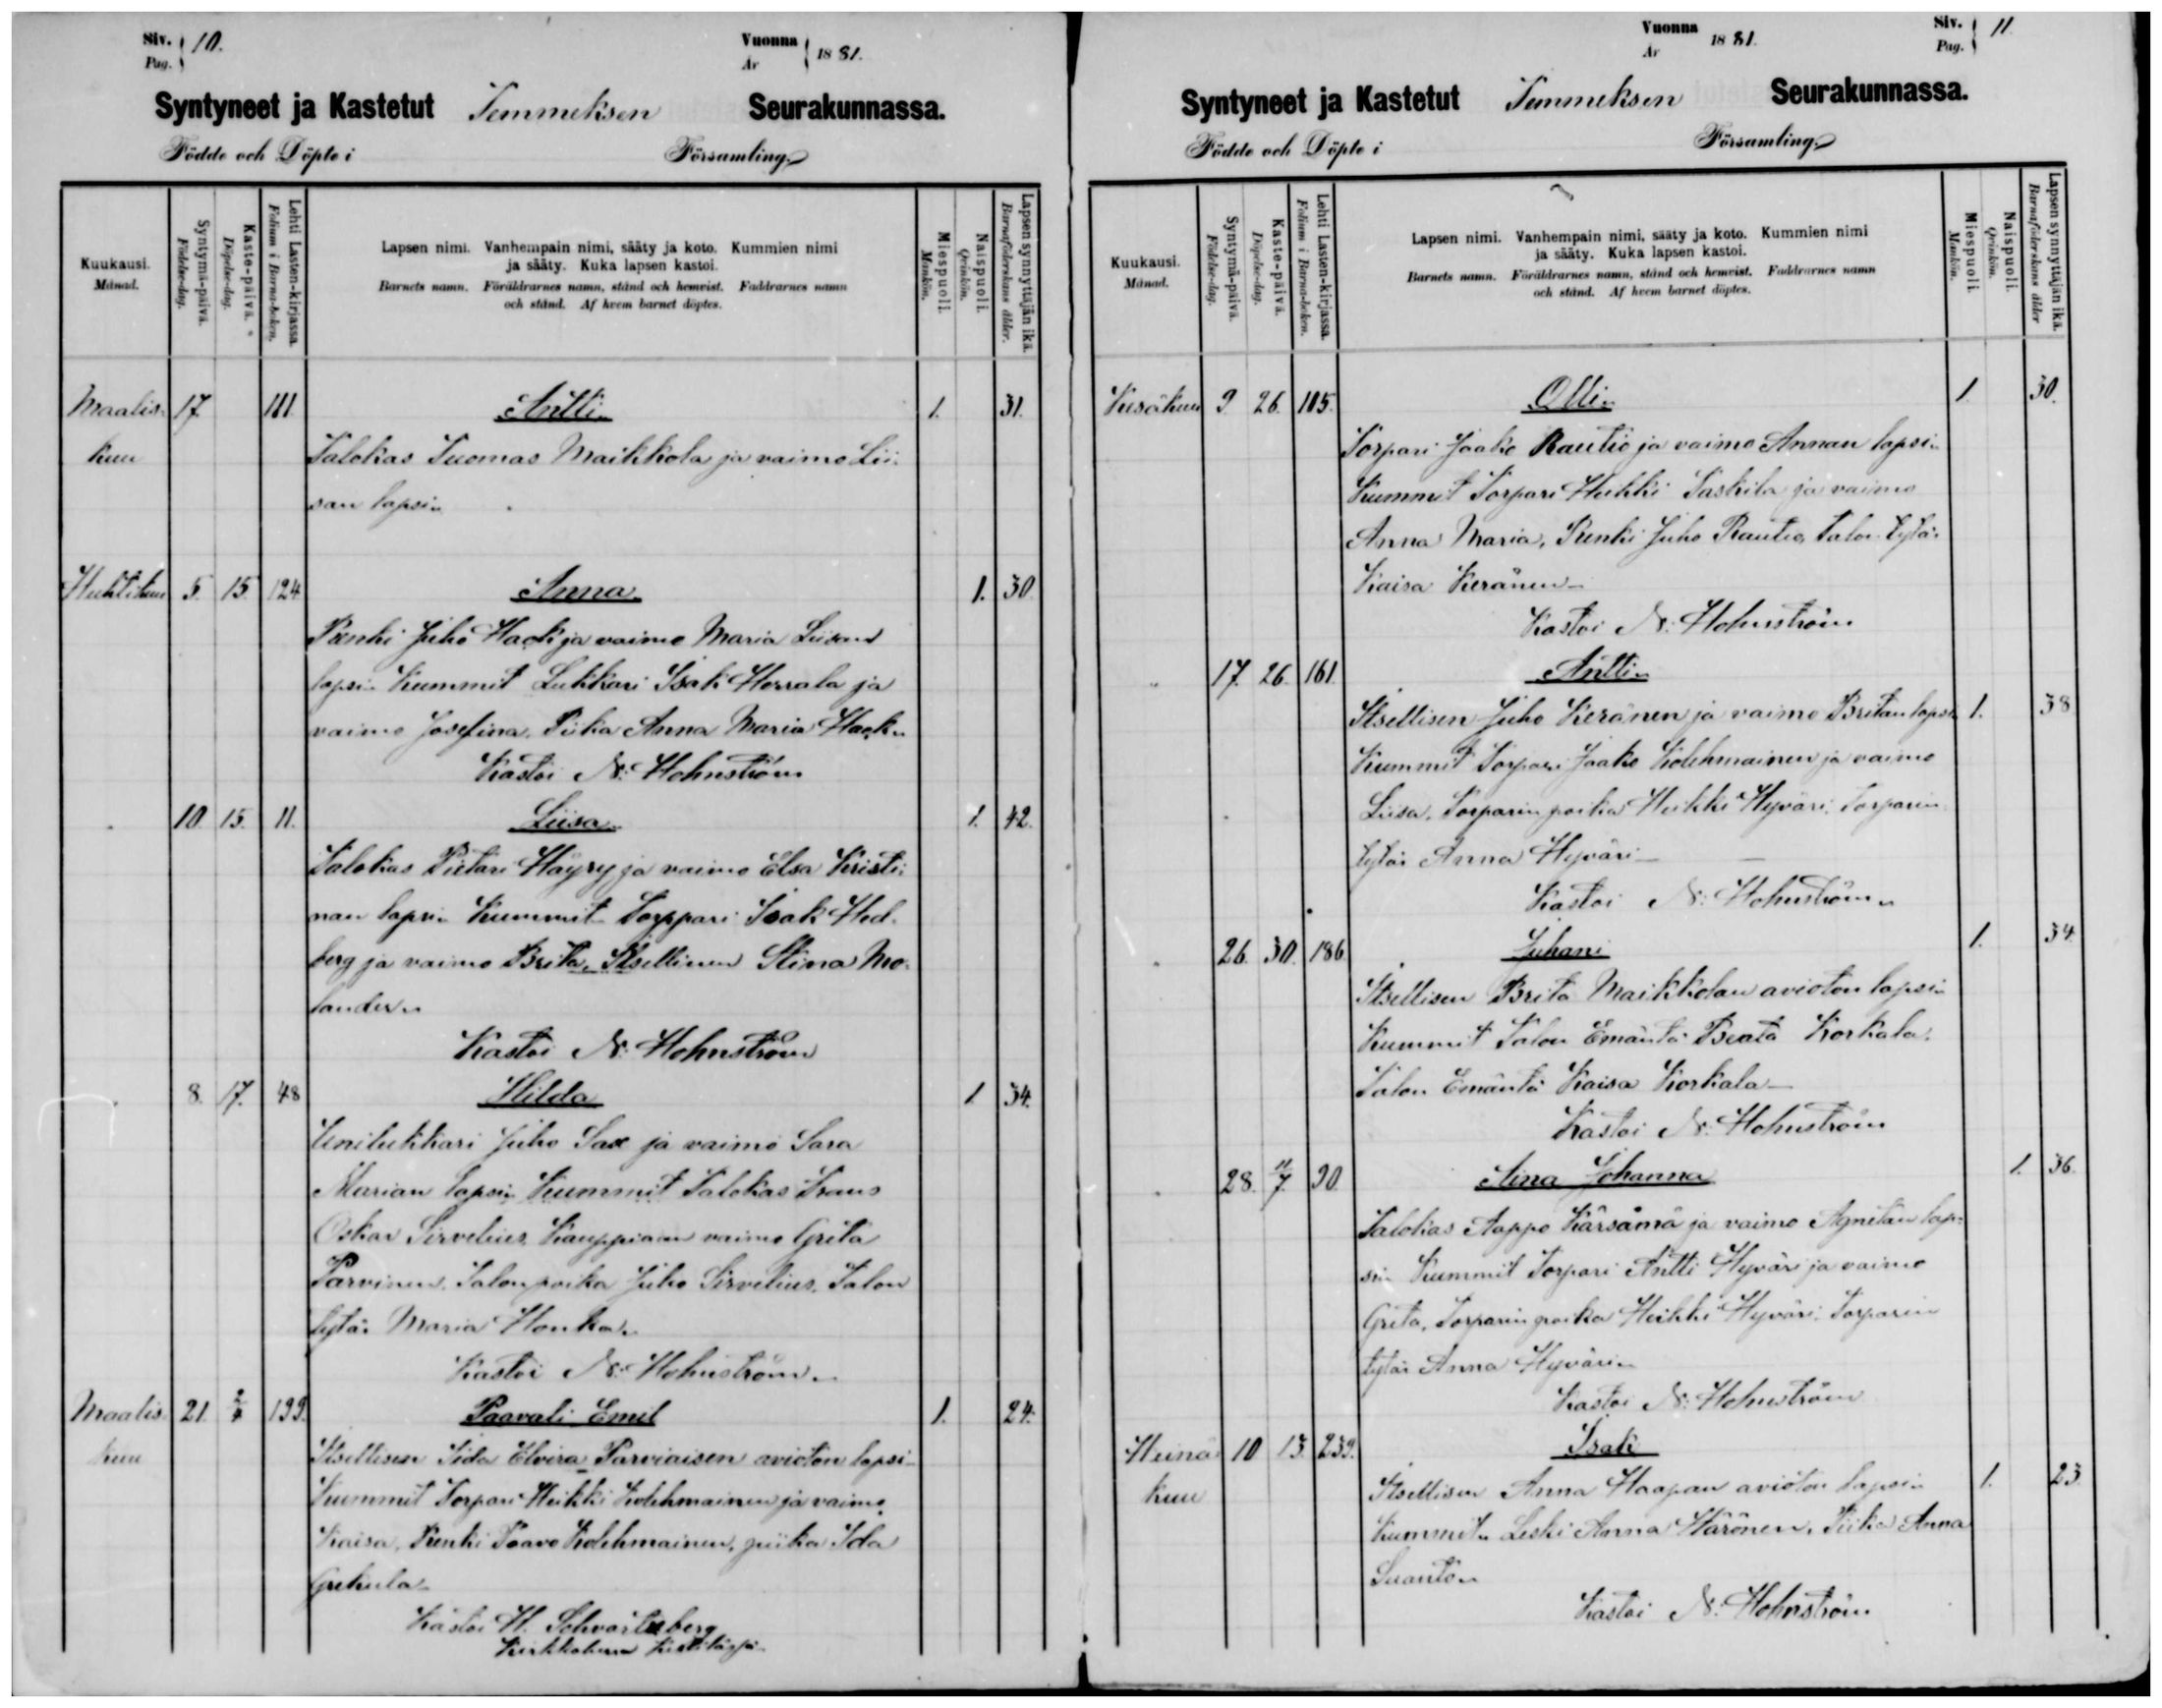 Siv. 10.
Pag.
Vuonna 1881.
År
Syntyneet ja Kastetut Temmeksen Seurakunnassa.
Födde och Döpte i Församling.
Kuukausi. Månad.
Syntymä-päivä. Födelse-dag.
Kaste-päivä. Döpelse-dag.
Lehti Lasten-kirjassa. Folium i Barna-boken.
Lapsen nimi. Vanhempain nimi, sääty ja koto. Kummien nimi
ja sääty. Kuka lapsen kastoi.
Barnets namn. Föräldrarnes namn, stånd och hemvist. Faddrarnes namn
och stånd. Af hvem barnet döptes.
Miespuoli. Mankön.
Naispuoli. Qvinkön.
Lapsen synnyttäjän ikä. Barnaföderskans ålder.
Maalis- 17 111. Antti. 1. 31.
kuu Talokas Tuomas Maikkola ja vaimo Lii-
san lapsi.
Huhtikuu 5. 15. 124 Anna 1. 30
Renki Juho Hack ja vaimo Maria Liisan
lapsi. Kummit Lukkari Isak Herrala ja
vaimo Josefina, Piika Anna Maria Hack.
Kastoi N: Hohnström
10. 15. 11. Liisa 1. 42.
Talokas Pietari Häyry ja vaimo Elsa Kristi-
nan lapsi. Kummit Torppari Isak Hed-
berg ja vaimo Brita, Itsellinen Stina Mo-
lander.
Kastoi N: Hohnström
8. 17. 48 Hilda 1. 34.
Unilukkari Juho Sax ja vaimo Sara
Marian lapsi. Kummit Talokas Frans
Oskar Sirvelius, Kauppiaan vaimo Grita
Parvinen, Talonpoika Juho Sirvelius, Talon
tytär Maria Honka.
Kastoi N: Hohnström.
Maalis- 21. 2/4 199. Paavali Emil 1. 24.
kuu Itsellisen Iida Elvira Parviaisen avioton lapsi
Kummit Torpari Heikki Kolehmainen ja vaimo
Kaisa, Renki Paavo Kolehmainen, piika Ida
Grekula
Kastoi H. Schvartzberg
Kirkkoherra
Vuonna 1881.
År
Siv. 11.
Pag.
Syntyneet ja Kastetut Temmeksen Seurakunnassa.
Födde och Döpte i Församling.
Kuukausi. Månad.
Syntymä-päivä. Födelse-dag.
Kaste-päivä. Döpelse-dag.
Lehti Lasten-kirjassa. Folium i Barna-boken.
Lapsen nimi. Vanhempain nimi, sääty ja koto. Kummien nimi
ja sääty. Kuka lapsen kastoi.
Barnets namn. Föräldrarnes namn, stånd och hemvist. Faddrarnes namn
och stånd. Af hvem barnet döptes.
Miespuoli. Mankön.
Naispuoli. Qvinkön.
Lapsen synnyttäjän ikä. Barnaföderskans ålder
Kesäkuu 9 26. 105. Olli. 1 30.
Torpari Jaako Rautio ja vaimo Annan lapsi.
Kummit Torpari Heikki Taskila ja vaimo
Anna Maria, Renki Juho Rautio, talon tytär
Kaisa Keränen
Kastoi N: Hohnström
17. 26. 161. Antti.
Itsellisen Juho Keränen ja vaimo Britan lapsi 1. 38
Kummit Torpari Jaako Kolehmainen ja vaimo
Liisa, Torparinpoika Heikki Hyväri, Torparin
tytär Anna Hyväri
Kastoi N: Hohnström.
26. 30. 186 Juhani 1. 34.
Itsellisen Brita Maikkolan avioton lapsi.
Kummit Talon Emäntä Beata Korkala,
Talon Emäntä Kaisa Korkala
Kastoi N: Hohnström
28. 11/7. 90. Aina Johanna 1. 36.
Talokas Aappo Kärsämä ja vaimo Agnetan lap-
si. Kummit Torpari Antti Hyväri ja vaimo
Greta, Torparinpoika Heikki Hyväri, Torparin
tytär Anna Hyväri.
Kastoi N: Hohnström
Heinä- 10 13. 239. Isak
kuu Itsellisen Anna Haapan avioton lapsi. 1. 23.
Kummit. Leski Anna Härönen, Piika Anna
Kastoi N: Hohnström